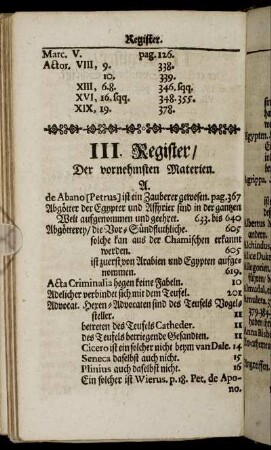 Register.
Marc. V. pag. 126.
Actor. VIII, 9. 338.
10. 339.
XIII, 6.8. 346. sqq.
XVI, 16. sqq. 348-355.
XIX, 19. 378.
III. Register/
Der vornehmsten Materien.
A.
de Abano [Petrus] ist ein Zauberer gewesen. pag. 367
Abgötter der Egypter und Assyrier sind in der gantzen
Welt aufgenommen und geehret. 633. bis 640
Abgötterey/ die Vor-Sündfluthliche. 605
solche kan aus der Chamischen erkannt
werden. 605
ist zuerst von Arabien und Egypten aufge-
nommen. 619.
Acta Criminalia hegen keine Fabeln. 10
Adelicher verbindet sich mit dem Teufel. 201
Advocat. Hexen-Advocaten sind des Teufels Vogel-
steller. 11
betreten des Teufels Catheder. 11
des Teufels betriegende Gesandten. 11
Cicero ist ein solcher nicht beym van Dale. 14
Seneca daselbst auch nicht. 15
Plinius auch daselbst nicht. 16
Ein solcher ist Wierus. p. 18. Pet. de Apo-
no.